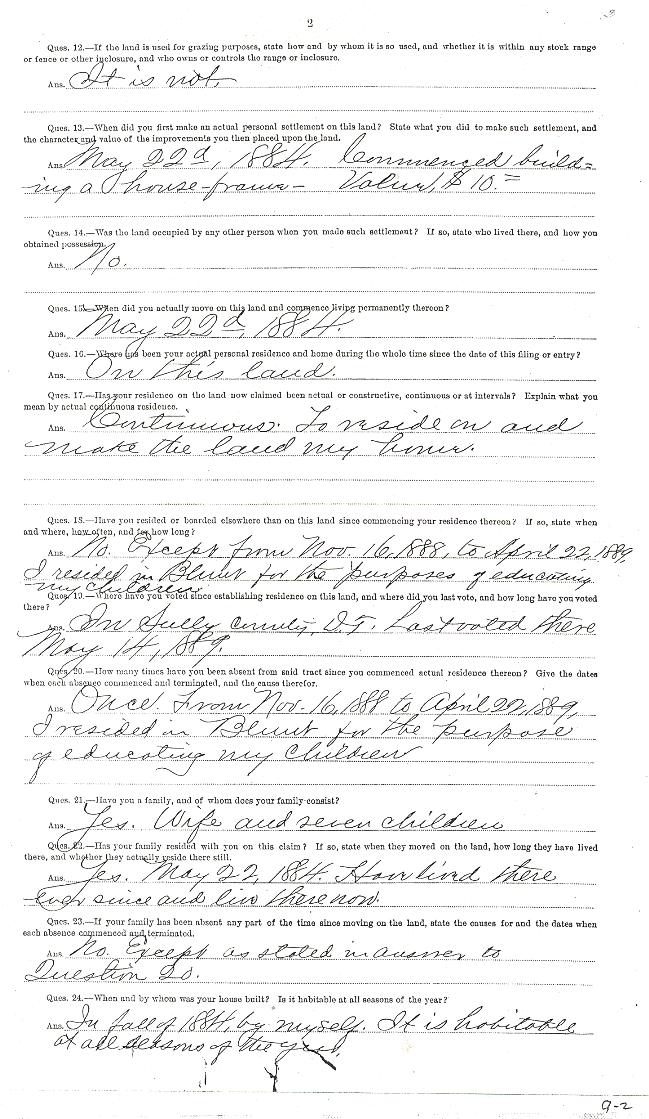 2
Ques. 12.—If the land is used for grazing purposes, state how and by whom it is so used, and whether it is within any stock range
or fence or other inclosure, and who owns or controls the range or inclosure.
Ans. It is not.
Ques. 13.—When did you first make an actual personal settlement on this land? State what you did to make such settlement, and
the character and value of the improvements you then placed upon the land.
Ans. May 22d, 1884. Commenced build=
ing a house-frame- Value, $10.=
Ques. 14.—Was the land occupied by any other person when you made such settlement? If so, state who lived there, and how you
obtained possession.
Ans. No.
Ques. 15.—When did you actually move on this land and commence living permanently thereon?
Ans. May 22d, 1884.
Ques. 16.—Where has been your actual personal residence and home during the whole time since the date of this filing or entry?
Ans. On this land.
Ques. 17.—Has your residence on the land now claimed been actual or constructive, continuous or at intervals? Explain what you
mean by actual continuous residence.
Ans. Continuous. To reside on and
make the land my home.
Ques. 18.—Have you resided or boarded elsewhere than on this land since commencing your residence thereon? If so, state when
and where, how often, and for how long?
Ans. No. Except from Nov. 16, 1888, to April 22, 1889,
I resided in Blunt for the purposes of educating
my children
Ques. 19.—Where have you voted since establishing residence on this land, and where did you last vote, and how long have you voted
there?
Ans. In Sully county, D.T. Last voted there
May 14, 1889.
Ques. 20.—How many times have you been absent from said tract since you commenced actual residence thereon? Give the dates
when each absence commenced and terminated, and the cause therefor.
Ans. Once. From Nov. 16, 1888 to April 22, 1889,
I resided in Blunt for the purpose
of educating my children
Ques. 21.—Have you a family, and of whom does your family consist?
Ans. Yes. Wife and seven children
Ques. 22.—Has your family resided with you on this claim? If so, state when they moved on the land, how long they have lived
there, and whether they actually reside there still.
Ans. Yes. May 22, 1884. Have lived there
ever since and live there now.
Ques. 23.—If your family has been absent any part of the time since moving on the land, state the causes for and the dates when
each absence commenced and terminated.
Ans. No. Except as stated in answer to
Question 20.
Ques. 24.—When and by whom was your house built? Is it habitable at all seasons of the year?
Ans. In fall of 1884, by myself. It is habitable
at all seasons of the year.
9-2